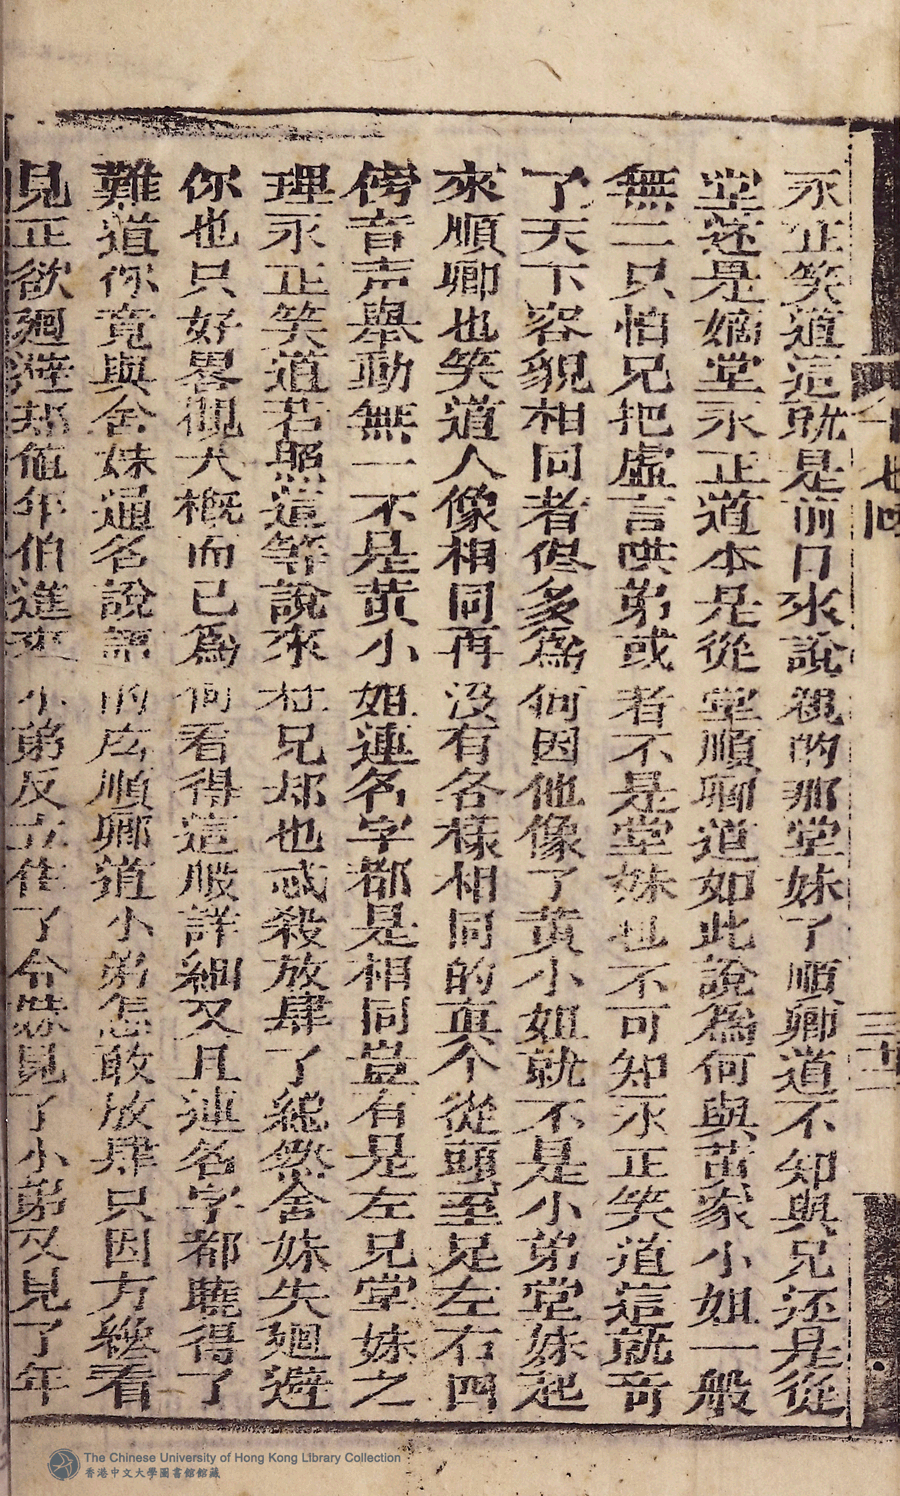 永正笑道這就是前日來說親的那堂妹了順卿道不知與兄还是從
堂还是嫡堂永正道本是從堂順卿道如此說為何與黄家小姐一般
無二只怕兄把虚言哄弟或者不是堂妹也不可知永正笑道這就竒
了天下容貌相同者但多為何因他像了黄小姐就不是小弟堂妹起
來順卿也笑道人像相同再没有各樣相同的真个從頭至足左右四
傍音声舉動無一不是黄小姐連名字都是相同豈有是左兄堂妹之
理永正笑道若照這等說來在兄却也忒殺放肆了縂然舍妹失廻避
你也只好畧觀大概而已為何看得這般詳細又且連名字都曉得了
難道你竟與舍妹通名說話的庅順卿道小弟怎敢放肆只因方纔看
見正欲廻避却值年伯進來小弟反立住了令妹見了小弟又見了年
三十二
The Chinese University of Hong Kong Library Collection
香港中文大學圖書館館藏